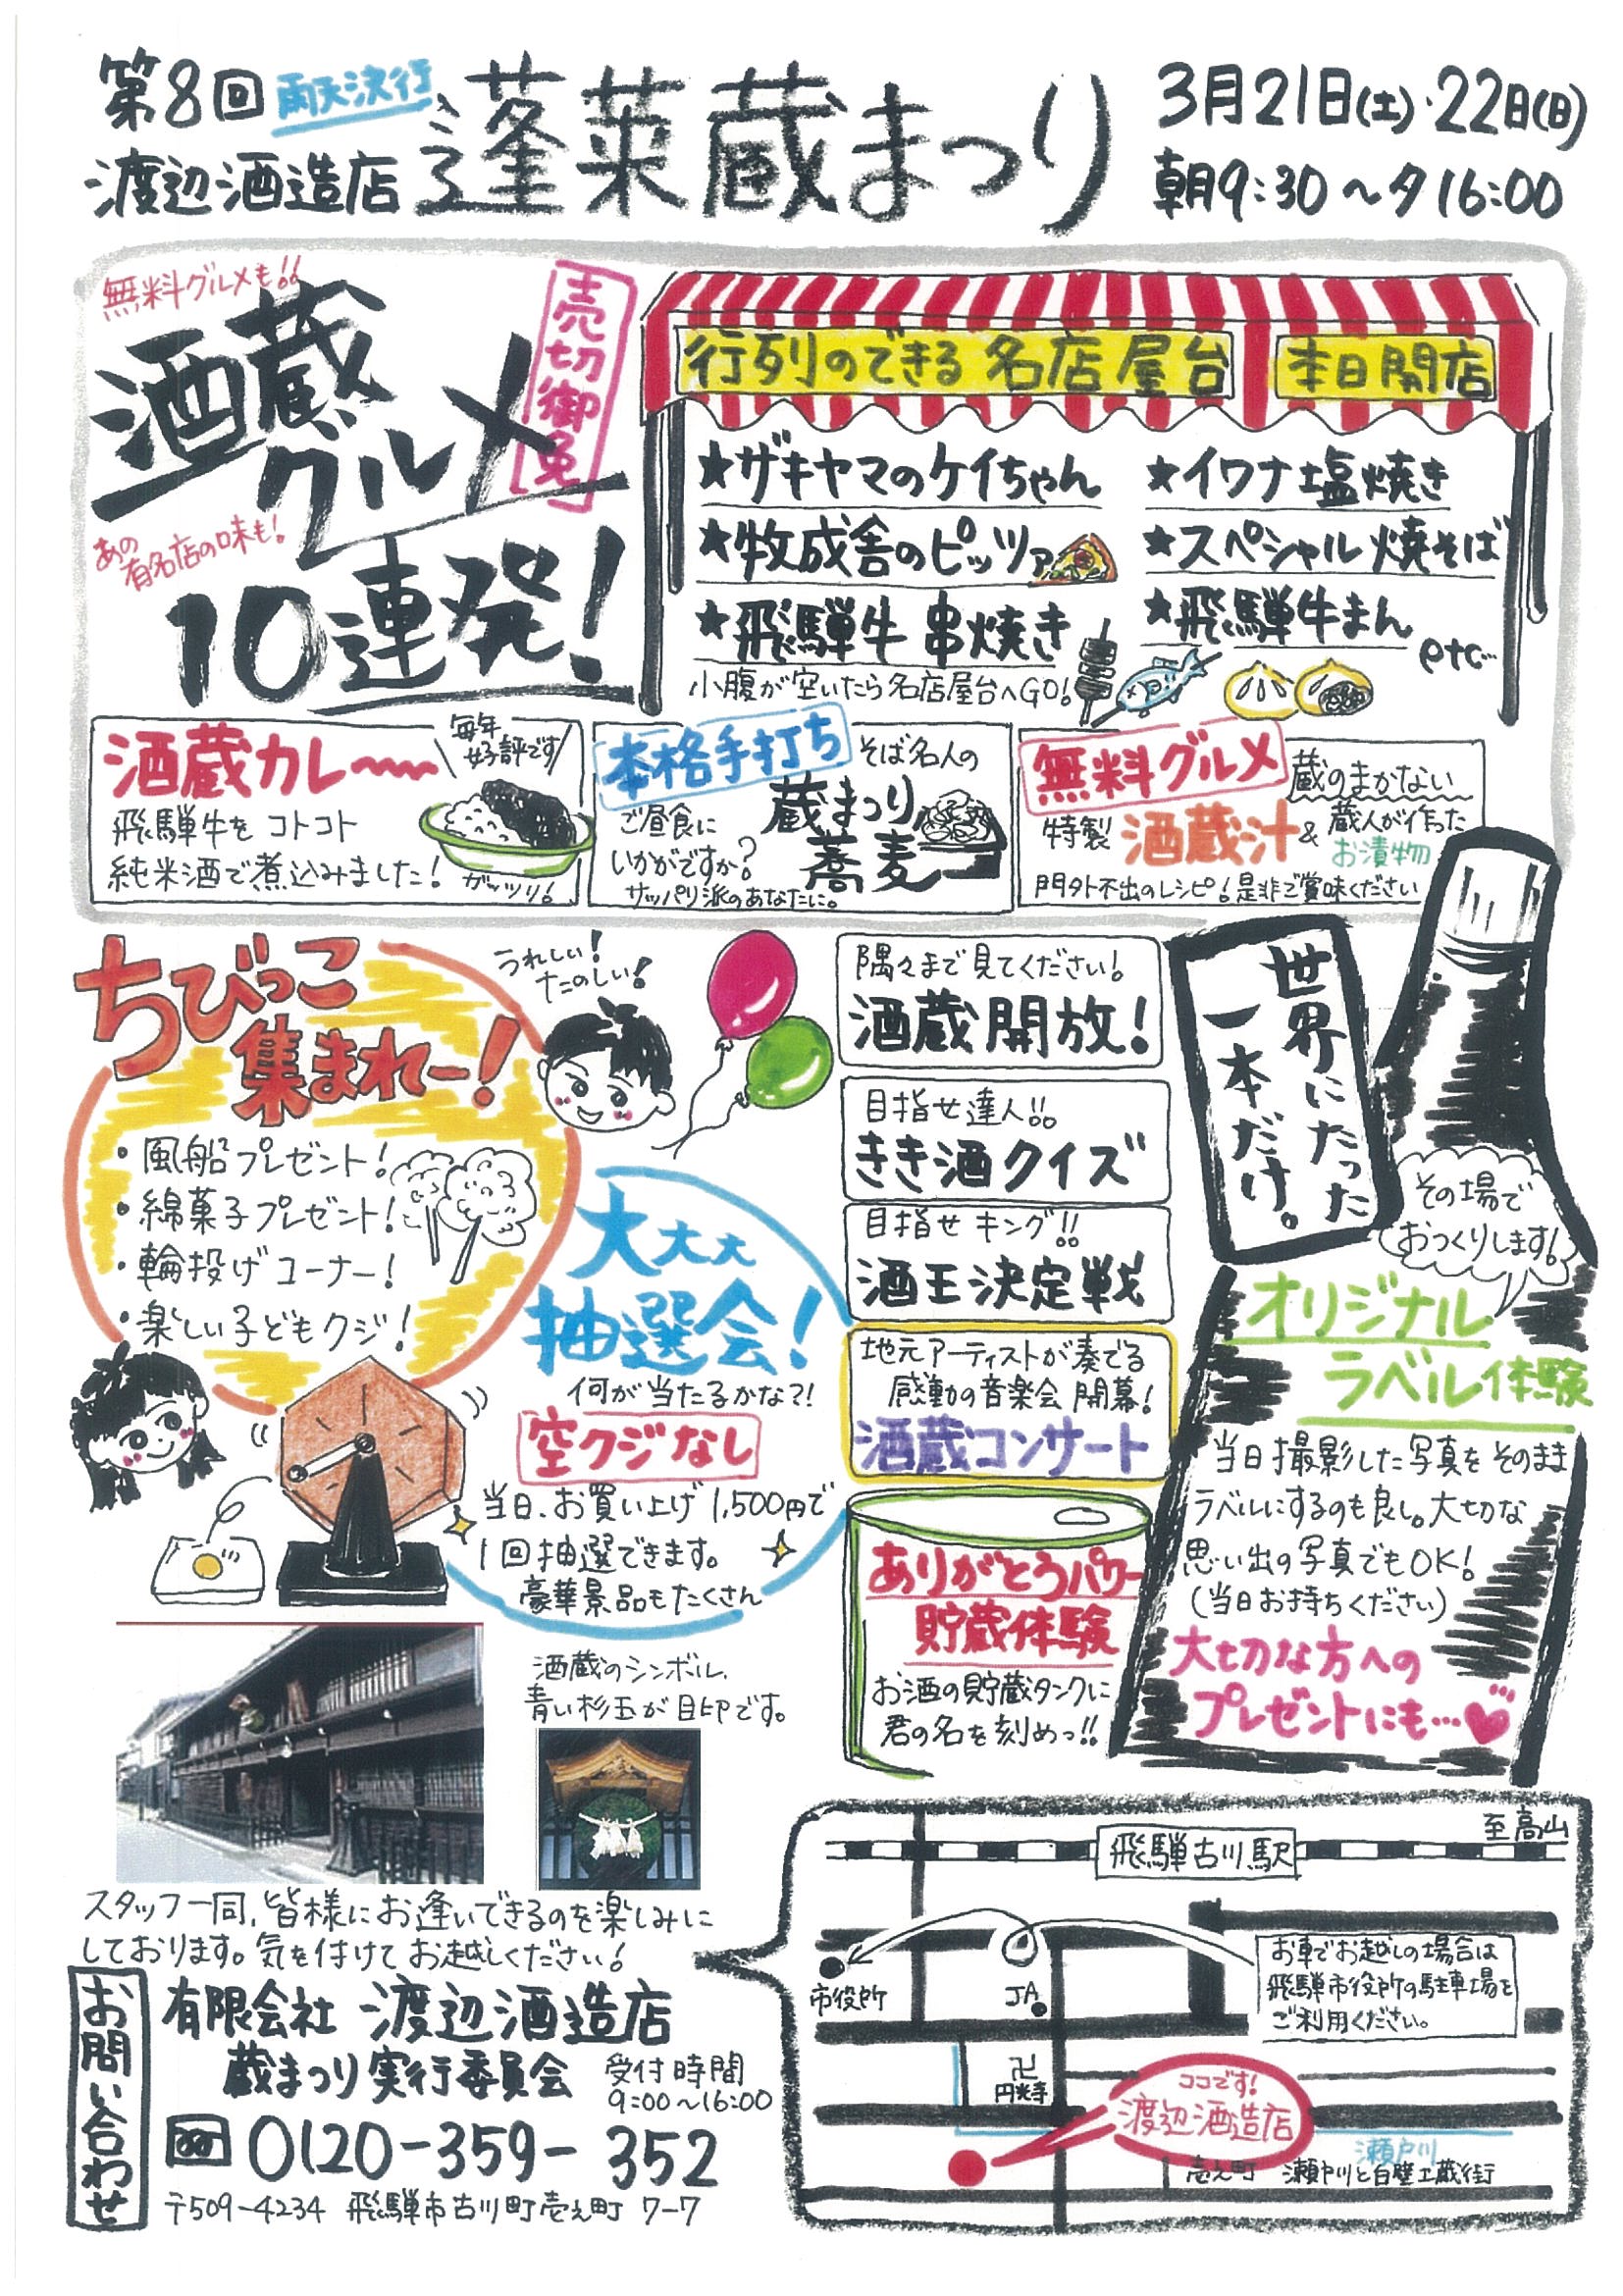 第8回
雨天決行
渡辺酒造店
蓬莱蔵まつり
3月21日(土)・22日(日)
朝9:30～夕16:00
無料グルメも!!
酒蔵
グルメ
10連発!
売切御免
あの
有名店の味も!
行列のできる名店屋台
本日開店
★ザキヤマのケイちゃん
★牧成舎のピッツァ
★飛騨牛串焼き
★イワナ塩焼き
★スペシャル焼そば
★飛騨牛まん
etc…
小腹が空いたら名店屋台へGO!
酒蔵カレ〜
毎年
好評です
飛騨牛をコトコト
純米酒で煮込みました!
ガッツリ!
本格手打ち
そば名人の
蔵まつり
蕎麦
ご昼食に
いかがですか?
サッパリ派のあなたに。
無料グルメ
蔵のまかない
特製 酒蔵汁&
蔵人が作った
お漬物
門外不出のレシピ!是非ご賞味ください
ちびっこ
集まれー!
うれしい!
たのしい!
・風船プレゼント!
・綿菓子プレゼント!
・輪投げコーナー!
・楽しい子どもクジ!
大大大
抽選会!
何が当たるかな?!
空クジなし
当日、お買い上げ1,500円で
1回抽選できます。
豪華景品もたくさん
隅々まで見てください!
酒蔵開放!
目指せ達人!!
きき酒クイズ
目指せキング!!
酒王決定戦
地元アーティストが奏でる
感動の音楽会開幕!
酒蔵コンサート
ありがとうパワー
貯蔵体験
お酒の貯蔵タンクに
君の名を刻めっ!!
世界にたった
一本だけ。
その場で
おつくりします!
オリジナル
ラベル体験
当日撮影した写真をそのまま
ラベルにするのも良し。大切な
思い出の写真でもOK!
(当日お持ちください)
大切な方への
プレゼントにも…♥
酒蔵のシンボル、
青い杉玉が目印です。
スタッフ一同、皆様にお逢いできるのを楽しみに
しております。気を付けてお越しください!
お問い合わせ
有限会社 渡辺酒造店
蔵まつり実行委員会
受付時間
9:00～16:00
0120-359-352
〒509-4234 飛騨市古川町壱之町 7-7
至高山
飛騨古川駅
お車でお越しの場合は
飛騨市役所の駐車場を
ご利用ください。
市役所
JA
卍
円光寺
ココです!
渡辺酒造店
瀬戸川
壱之町
瀬戸川と白壁土蔵街